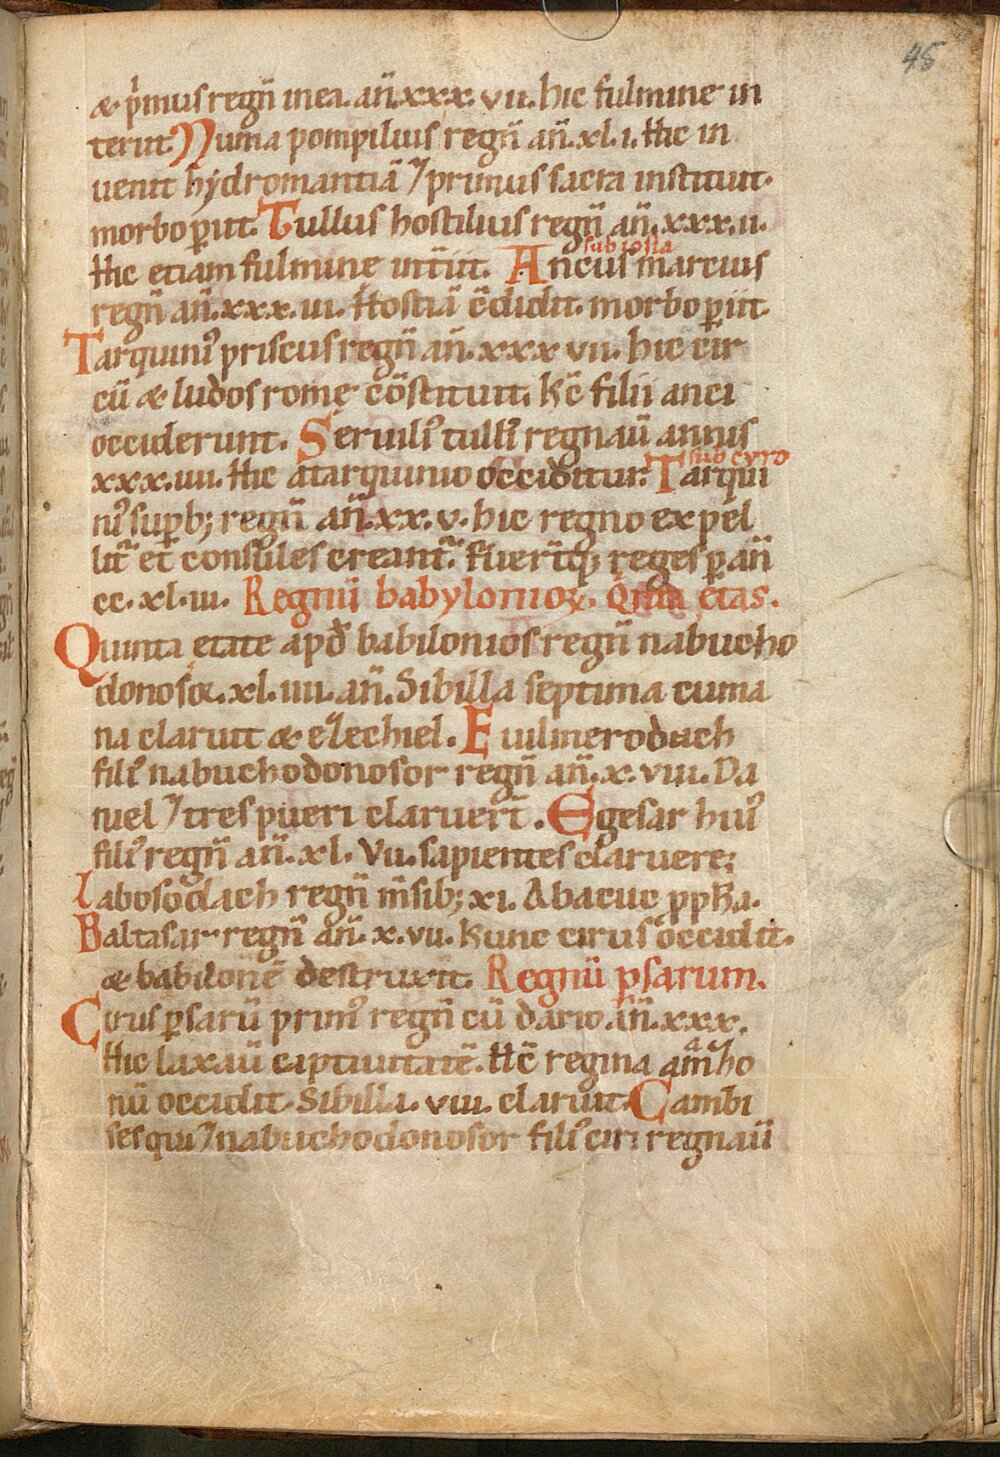 45
& p̍mus regn̄ in ea. an̄. xxx. vii. hic fulmine in
teriit. Numa pompilius regn̄ an̄. xl. i. Hic in
uenit hydromantiā ⁊ primus sacra instituit.
morbo ꝑiit. Tullus hostilius regn̄ an̄. xxx. ii.
sub iosia
Hic etiam fulmine int̄iit. Ancus marcius
regn̄ an̄. xxx. iii. Hostiā c̄didit. morbo ꝑiit.
Tarquiniꝰ priscus regn̄ an̄. xxx vii. hic cir
cū & ludos romę cōstituit. hc̄ filii anci
occiderunt. Seruiliꝰ tulliꝰ regnaū annis
sub cyro
xxx. iiii. Hic a tarquinio occiditur. Tarqui
niꝰ suꝑb; regn̄ an̄. xx. v. hic regno expel
lit̄ et consules creant̄. Fuer̄t q; reges ꝑ an̄
cc. xl. iii. Regnū babylonioꝝ. Qinta etas.
Quinta etate apđ babilonios regn̄ nabucho
donosoꝝ. xl. iiii. an̄. Sibilla septima cuma
na claruit & ezechiel. Euilmerodach
filiꝰ nabuchodonosor regn̄ an̄. x. viii. Da
niel ⁊ tres pueri claruer̄t. Egesar huiꝰ
filiꝰ regn̄ an̄. xl. Vii. sapientes claruere;
Labosodach regn̄ m̄sib; xi. Abacuc ꝓpħa.
Baltasar regn̄ an̄. x. vii. hunc cirus occidit.
& babilonē destruxit. Regnū ꝑsarum.
Cirus ꝑsarū primꝰ regn̄ cū dario. an̄. xxx.
Hic laxaū captiuitatē. Hc̄ regina amazo
nū occidit. Sibilla. viii. claruit. Cambi
ses qui ⁊ nabuchodonosor filiꝰ ciri regnaū